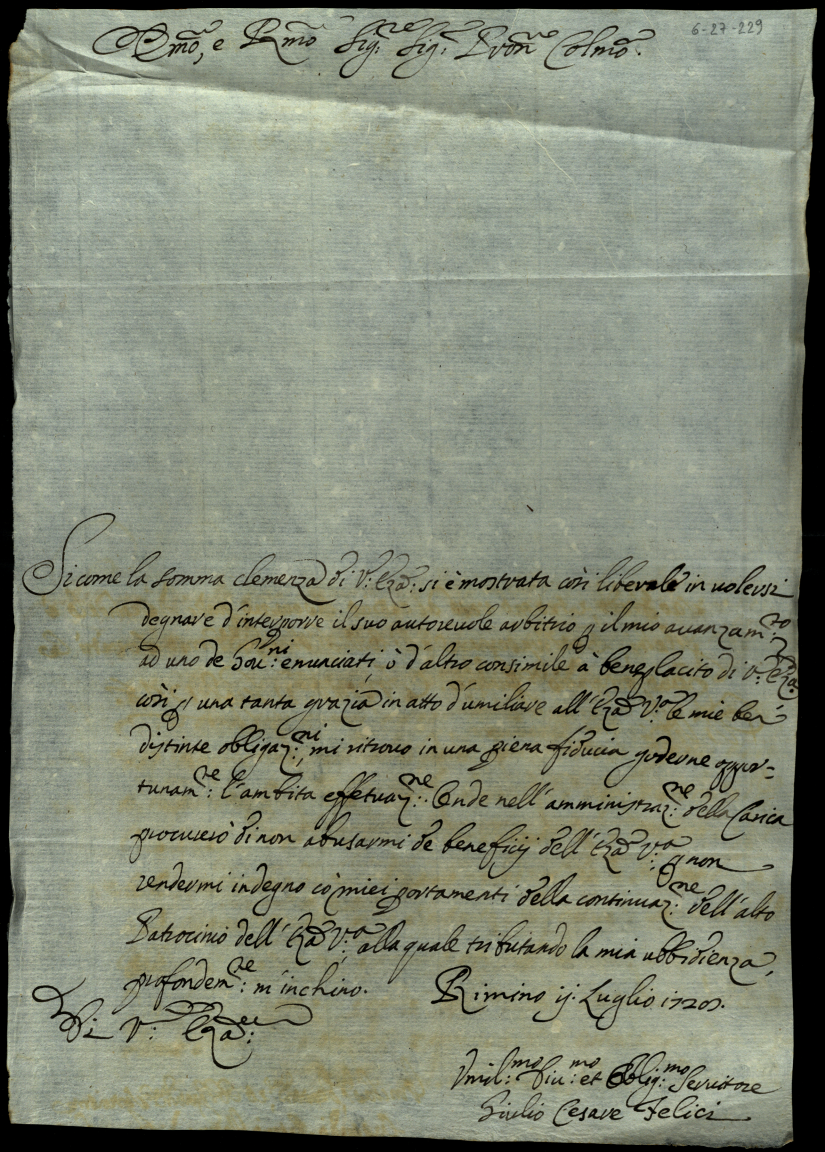 6-27-229
Em̃o, e Rmõ Sig.re Sig.r Pron̄e Colmõ.
Sicome la somma clemenza di V: Eza: si è mostrata così liberale in volersi
degnare d'interporre il suo autorevole arbitrio p il mio avanzam:to
ad uno de Gov:ni enunciati, ò d'altro consimile à beneplacito di V: Eza
così p una tanta grazia in atto d'umiliare all'Eza V:a le mie ben
distinte obligaz:ni, mi ritrovo in una piena fiducia goderne oppor-
tunam:te l'ambita effetuaz:ne. Onde nell'amministraz:ne della Carica
procurerò di non abusarmi de beneficij dell'Eza V:a, p non
rendermi indegno cò miei portamenti della continuaz:ne dell'alto
Patrocinio dell'Eza V:a, alla quale tributando la mia ubbidienza,
profondem:te m'inchino. Rimino ij: Luglio
Di V: Eza:
Vmil:mo Diu:mo et Oblig:mo Servitore
Giulio Cesare Felici